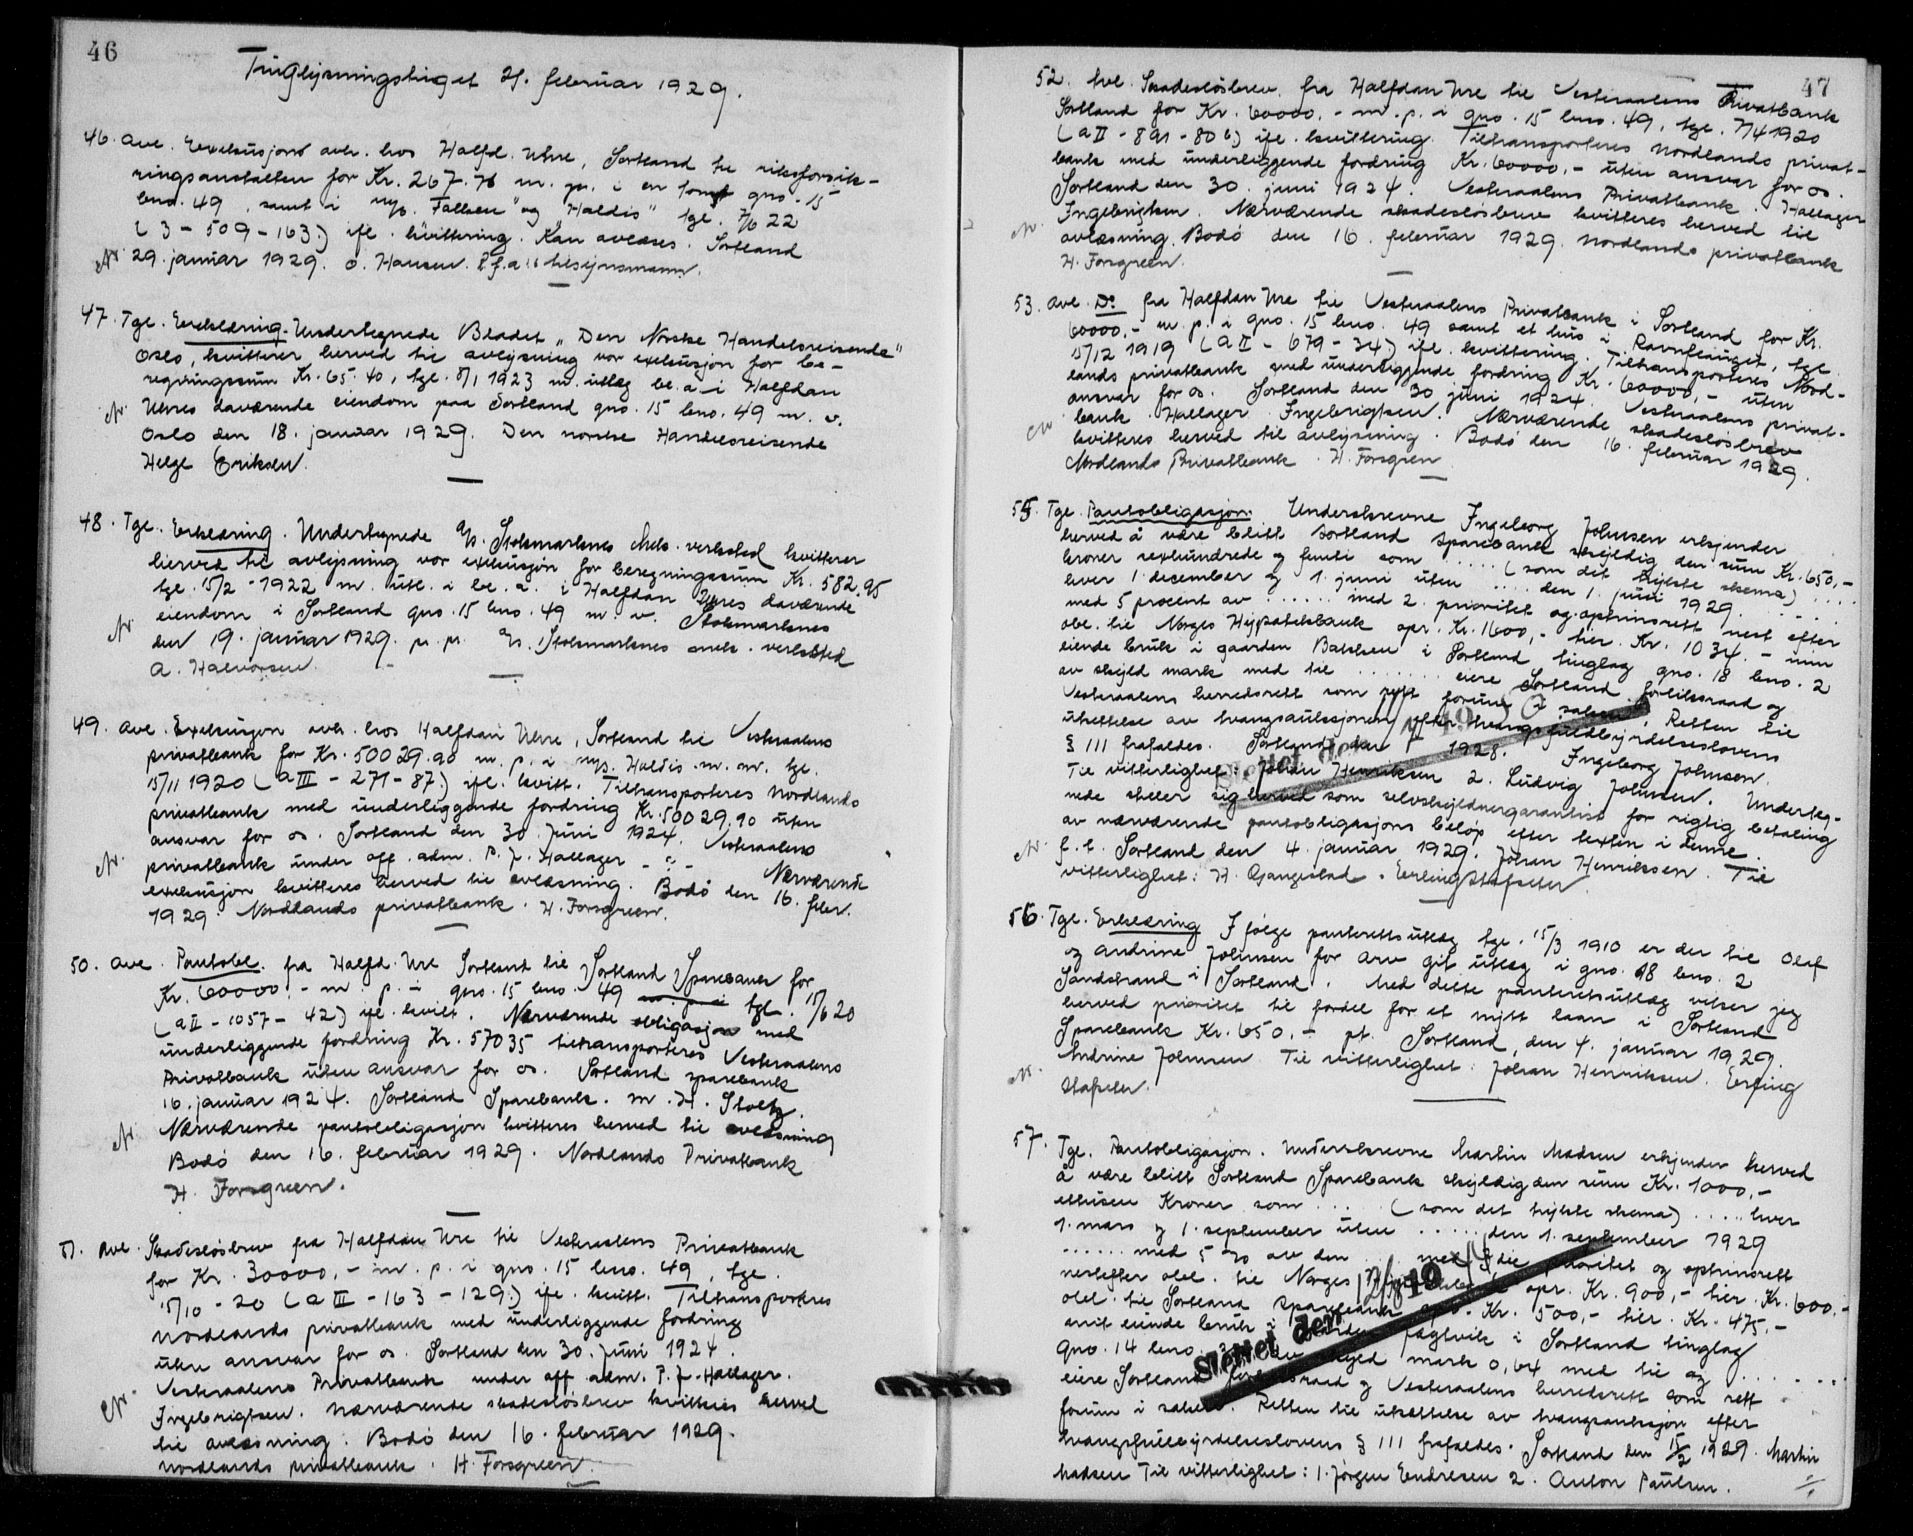 46
Tinglysningstinget 21. februar 1929.
46. Avl. Exekusjons avh. hos Halfd. Uhre, Sortland til riksforsik-
ringsanstalten for Kr. 267.76 m. p. i en tomt gno. 15
bno. 49, samt i m/k. "Falken" og "Haldis" tgl. 7/6 22
(3 - 509 - 163) ifl. kvittering. Kan avlæses. Sortland
29. januar 1929. O. Hansen. R.f.a's tilsynsmann.
47. Tgl. Erklæring. Undertegnede Bladet "Den Norske Handelsreisende"
Oslo, kvitterer herved til avlysning vor exekusjon for be-
regningssum Kr. 65.40, tgl. 8/1 1923 m. utlæg bl. a. i Halfdan
Uhres daværende eiendom paa Sortland gno. 15 bno. 49 m. v.
Oslo den 18. januar 1929. Den norske Handelsreisende
Helge Eriksen.
48. Tgl. Erklæring. Undertegnede A/s. Stokmarknes Mek. verksted kvitterer
herved til avlysning vor exekusjon for beregningssum Kr. 582,95
tgl. 15/2 - 1922 m. utl. i bl. a. i Halfdan Uhres daværende
eiendom i Sortland gno. 15 bno. 49 m. v. Stokmarknes
den 19. januar 1929. p. p. A/s. Stokmarknes mek. verksted
A. Halvorsen.
49. Avl. Exekusjon avh. hos Halfdan Uhre, Sortland til Vesteraalens
privatbank for Kr. 50029.90 m. p. i m/k. Haldis m. m. tgl.
15/11 1920 (A III - 271 - 87.) ifl. kvitt. Tiltransporteres Nordlands
privatbank med underliggende fordring Kr. 50029,90 uten
ansvar for os. Sortland den 30. juni 1924. Vesteraalens
privatbank under off. adm. P. J. Hallager - " - Nærværende
exekusjon kvitteres herved til avlæsning. Bodö den 16. febr.
1929. Nordlands privatbank. H. Forsgreen.
50. Avl. Pantobl. fra Halfd. Ure Sortland til Sortland Sparebank for
Kr. 60000.- m. p. i gno. 15 bno. 49 tgl. 15/6 20
(A II - 1057 - 42) ifl. kvitt. Nærværende obligasjon med
underliggende fordring Kr. 57035 tiltransporteres Vesteraalens
Privatbank uten ansvar for os. Sortland sparebank
16. januar 1924. Sortland Sparebank. M. H. Stoltz.
Nærværende pantobligasjon kvitteres herved til avlæsning
Bodö den 16. februar 1929. Nordlands Privatbank
H. Forsgreen.
51. Avl. Skadeslösbrev fra Halfdan Ure til Vesteraalens Privatbank
for Kr. 30000,- m. p. i gno. 15 bno. 49, tgl.
15/10 - 20 (A III - 163 - 129.) ifl. kvitt. Tiltransporteres
Nordlands privatbank med underliggende fordring
uten ansvar for os. Sortland den 30. juni 1924.
Vesteraalens Privatbank under off. adm. P. J. Hallager.
Ingebrigtsen. Nærværende skadeslösbrev kvitteres herved
til avlæsning. Bodö den 16. februar 1929.
Nordlands privatbank. H. Forsgreen.
47
52. Avl. Skadeslösbrev fra Halfdan Ure til Vesteraalens Privatbank
Sortland for Kr. 60000.- m. p. i gno. 15 bno. 49, tgl. 7/4 1920
(A II - 891 - 806) ifl. kvittering. Tiltransporteres Nordlands privat-
bank med underliggende fordring Kr. 60000,- uten ansvar for os.
Sortland den 30. juni 1924. Vesteraalens Privatbank. Hallager
Ingebrigtsen. Nærværende skadeslösbrev kvitteres herved til
avlæsning. Bodö den 16. februar 1929. Nordlands privatbank
H. Forsgreen.
53. Avl. Do fra Halfdan Ure til Vesteraalens Privatbank i Sortland for Kr.
60000.- m. p. i gno. 15 bno. 49 samt et hus i Ravnflauget, tgl.
15/12 1919 (A II - 679 - 34) ifl. kvittering. Tiltransporteres Nord-
lands privatbank med underliggende fordring Kr. 60000,- uten
ansvar for os. Sortland den 30 juni 1924. Vesteraalens privat-
bank. Hallager Ingebrigtsen. Nærværende skadeslösbrev
kvitteres herved til avlysning. Bodö den 16. februar 1929.
Nordlands Privatbank. H. Forsgren
55. Tgl. Pantobligasjon. Underskrevne Ingeborg Johnsen erkjender
herved å være blitt Sortland Sparebank skyldig den sum Kr. 650,-
kroner sexhundrede og femti som ..... (som det trykte skema) ....
hver 1. december og 1. juni uten ... den 1. juni 1929. ....
med 5 procent av ...... med 2. prioritet og optrinsrett nest efter
obl. til Norges Hypotekbank opr. Kr. 1600,- hier. Kr. 1034.- min
eiende bruk i gaarden Bakken i Sortland tinglag gno. 18 bno. 2
av skyld mark med til ........ eiere Sortland forliksraad og
Vesteraalens herredsrett som rett forum i saken. Retten til
utsettelse av tvangsauksjonen efter tvangsfuldbyrdelseslovens
§ 111 frafaldes. Sortland den 1928. Ingeborg Johnsen.
Til vitterlighet: Johan Henriksen 2. Ludvig Johnsen. Underteg-
nede steller sig herved som selvskyldnergarantist for rigtig betaling
av nærværende pantobligasjons belöp efter texten i denne.
f. t. Sortland den 4. januar 1929. Johan Henriksen. Til
vitterlighet: H. Gangestad. Erling Stafseter.
Slettet den 19
56. Tgl. Erklæring I fölge panterettsutlæg tgl. 15/3 1910 er der til Olaf
og Andrine Johnsen for arv git utlæg i gno. 18 bno. 2
Sandstrand i Sortland. Med dette panterettsutlæg viker jeg
herved prioritet til fordel for et nytt laan i Sortland
Sparebank Kr. 650.- pt. Sortland, den 4. januar 1929.
Andrine Johnsen Til vitterlighet: Johan Henriksen. Erling
Stafseter.
57. Tgl. Pantobligasjon. Underskrevne Martin Madsen erkjender herved
å være blitt Sortland Sparebank skyldig den sum Kr. 1000,-
ettusen Kroner som .... (som det trykte skema) ..... hver
1. mars og 1. september uten ..... den 1. september 1929
...... med 5 % av den ... med 3die prioritet og optrinsrett
nestefter obl. til Norges opr. Kr. 900,- hier. Kr. 600.-
obl. til Sortland Sparebank opr. Kr. 500,- hier. Kr. 475,-
mit eiende bruk i gaarden Jægtvik i Sortland tinglag
gno. 14 bno. av skyld mark 0,64 med til og ........
eiere Sortland forliksraad og Vesteraalens herredsrett som rett
forum i saken. Retten til utsettelse av tvangsauksjon efter
tvangsfullbyrdelseslovens § 111 frafaldes. Sortland den 15/2 1929. Martin
Madsen Til vitterlighet: 1. Jörgen Endresen 2. Anton Paulsen.
Slettet den 19